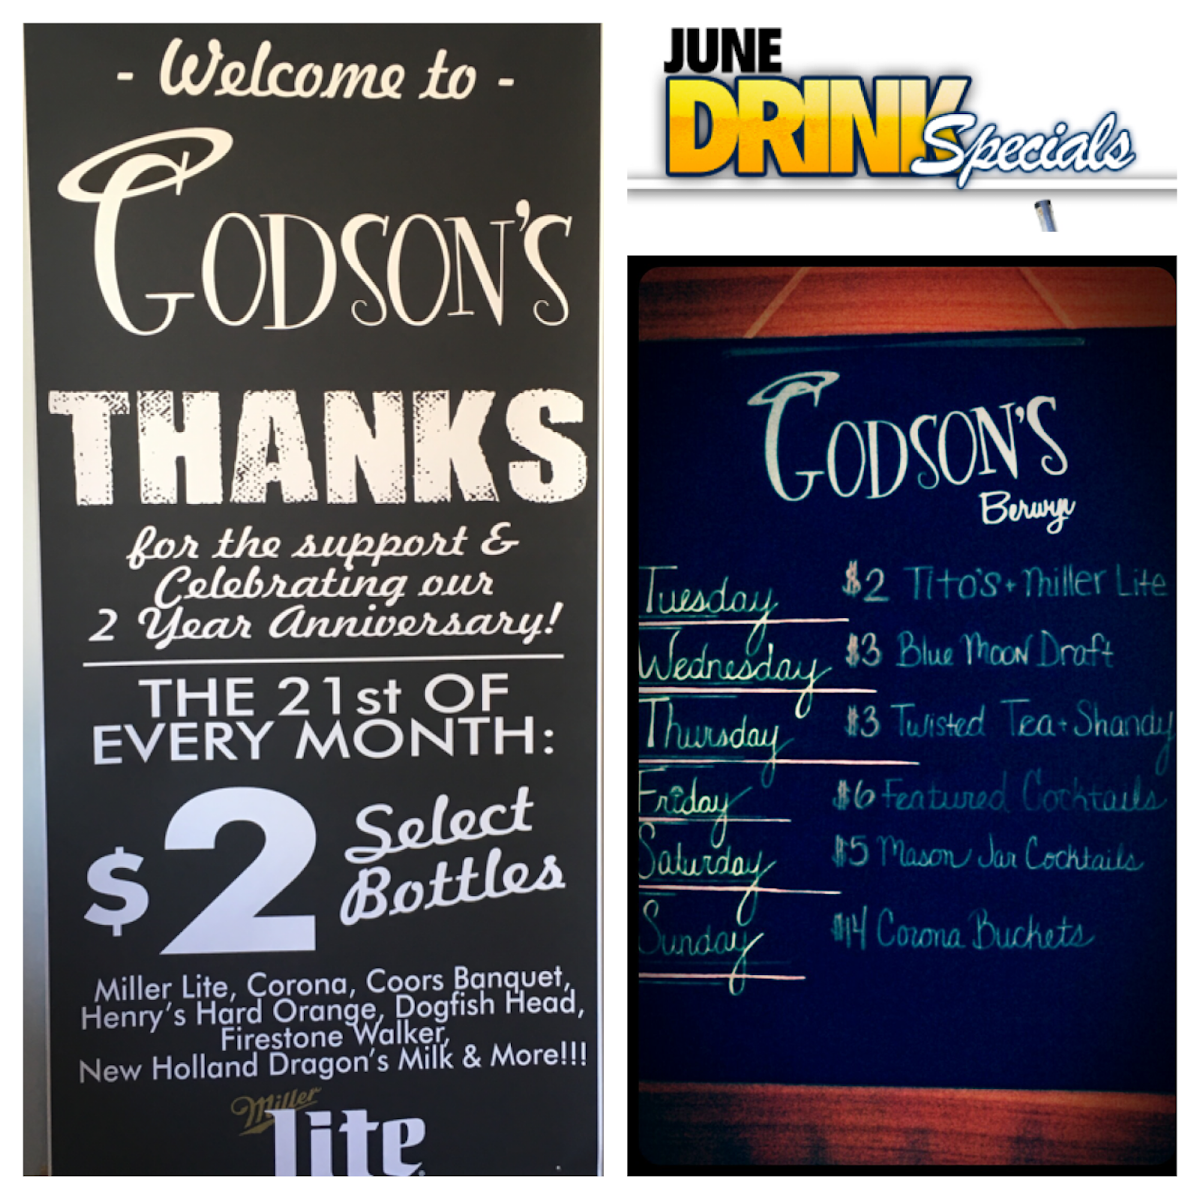 - Welcome to -
GODSON'S
THANKS
for the support &
Celebrating our
2 Year Anniversary!
THE 21st OF
EVERY MONTH:
$2 Select
Bottles
Miller Lite, Corona, Coors Banquet,
Henry's Hard Orange, Dogfish Head,
Firestone Walker,
New Holland Dragon's Milk & More!!!
Miller
lite
JUNE
DRINK Specials
GODSON'S
Berwyn
Tuesday $2 Tito's + Miller Lite
Wednesday $3 Blue Moon Draft
Thursday $3 Twisted Tea + Shandy
Friday $6 Featured Cocktails
Saturday $5 Mason Jar Cocktails
Sunday $14 Corona Buckets